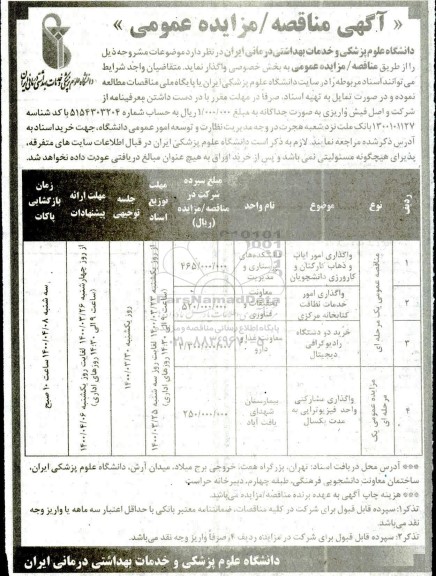 « آگهی مناقصه/مزایده عمومی »
دانشگاه علوم پزشکی و خدمات بهداشتی درمانی ایران
دانشگاه علوم پزشکی و خدمات بهداشتی درمانی ایران در نظر دارد موضوعات مشروحه ذیل
را از طریق مناقصه / مزایده عمومی به بخش خصوصی واگذار نماید. متقاضیان واجد شرایط
می‌توانند اسناد مربوطه را در سایت دانشگاه علوم پزشکی ایران یا پایگاه ملی مناقصات مطالعه
نموده و در صورت تمایل به تهیه اسناد، صرفاً در مهلت مقرر با در دست داشتن معرفینامه از
شرکت و اصل فیش واریزی به صورت جداگانه به مبلغ ۱/۰۰۰/۰۰۰ ریال به حساب شماره ۵۱۵۴۳۰۳۲۰۴ با کد شناسه
۱۳۰۰۱۰۱۱۲۷ بانک ملت نزد شعبه هجرت در وجه مدیریت نظارت و توسعه امور عمومی دانشگاه، جهت خرید اسناد به
آدرس ذکر شده مراجعه نمایند. لازم به ذکر است دانشگاه علوم پزشکی ایران در قبال اطلاعات سایت های متفرقه،
پذیرای هیچگونه مسئولیتی نمی باشد و پس از خرید اوراق به هیچ عنوان مبالغ دریافتی عودت داده نخواهد شد.
ردیف
نوع
موضوع
نام واحد
مبلغ سپرده شرکت در مناقصه/مزایده (ریال)
مهلت توزیع اسناد
جلسه توجیهی
مهلت ارائه پیشنهادات
زمان بازگشایی پاکات
مناقصه عمومی یک مرحله ای
۱
واگذاری امور ایاب
و ذهاب کارکنان و
کارورزی دانشجویان
دانشکده‌های
پرستاری و
مدیریت
۴۶۵/۰۰۰/۰۰۰
۲
واگذاری امور
خدمات نظافت
کتابخانه مرکزی
معاونت
تحقیقات
فناوری
۵۲۰/۰۰۰/۰۰۰
۳
خرید دو دستگاه
رادیوگرافی
دیجیتال
معاونت غذا و
دارو
مزایده عمومی یک مرحله ای
۴
واگذاری مشارکتی
واحد فیزیوتراپی به
مدت یکسال
بیمارستان
شهدای
یافت آباد
۲۵۰/۰۰۰/۰۰۰
از روز یکشنبه ۱۴۰۰/۰۳/۲۳ لغایت روز سه شنبه ۱۴۰۰/۰۳/۲۵
(ساعت ۹ الی ۱۴:۳۰ روزهای اداری)
روز یکشنبه ۱۴۰۰/۰۳/۳۰
از روز چهارشنبه ۱۴۰۰/۰۳/۲۶ لغایت روز یکشنبه ۱۴۰۰/۰۴/۰۶
(ساعت ۹ الی ۱۴:۳۰ روزهای اداری)
سه شنبه ۱۴۰۰/۰۴/۰۸ ساعت ۱۰ صبح
*** آدرس محل دریافت اسناد: تهران، بزرگراه همت، خروجی برج میلاد، میدان آرش، دانشگاه علوم پزشکی ایران،
ساختمان معاونت دانشجویی فرهنگی، طبقه چهارم، دبیرخانه حراست
*** هزینه چاپ آگهی به عهده برنده مناقصه/مزایده می‌باشد.
تذکر۱: سپرده قابل قبول برای شرکت در کلیه مناقصات، ضمانتنامه معتبر بانکی با حداقل اعتبار سه ماهه یا واریز وجه
نقد می باشد.
تذکر۲: سپرده قابل قبول برای شرکت در مزایده ردیف ۴، صرفاً واریز وجه نقد می‌باشد.
دانشگاه علوم پزشکی و خدمات بهداشتی درمانی ایران